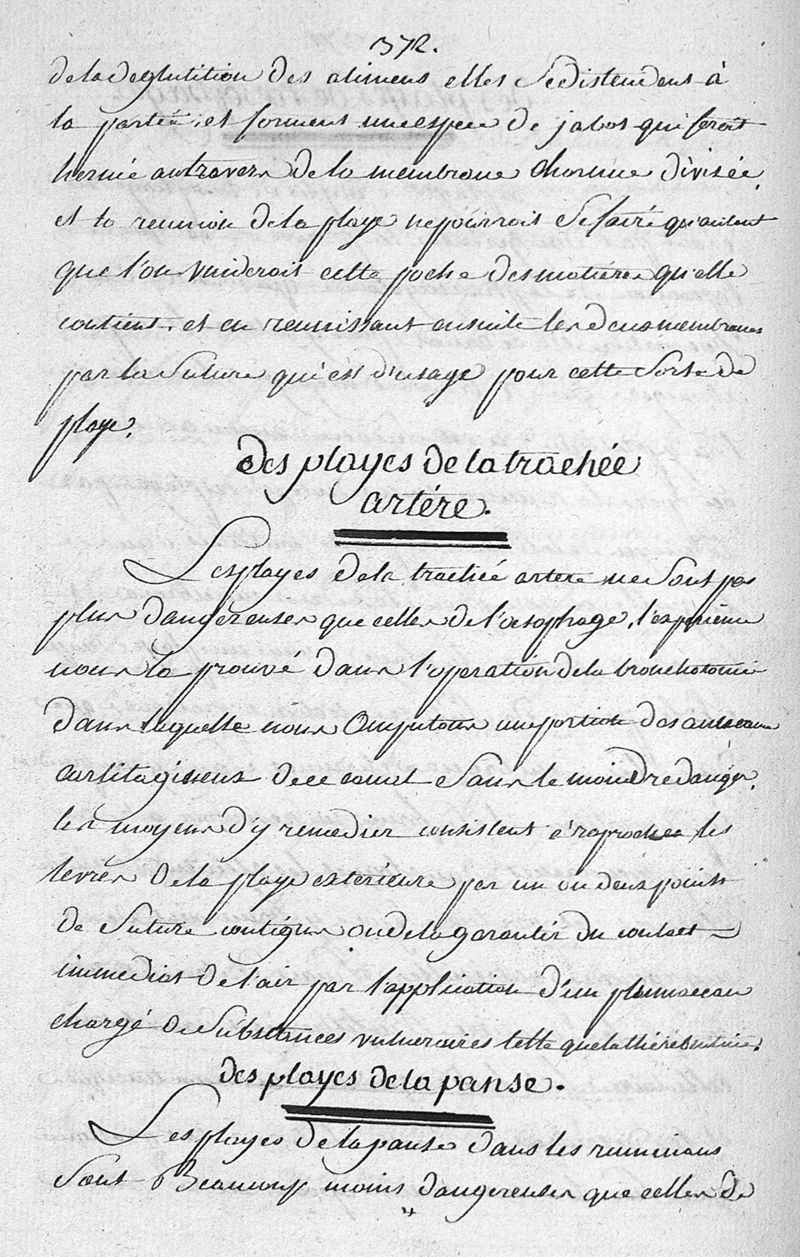 372.
de la deglutition des alimens elles se distendent à
la partie, et forment une espece de jabot qui seroit
hernié au travers de la membrane charnue divisée,
et la reunion de la playe ne pourroit se faire qu'autant
que l'on vuideroit cette poche des matieres qu'elle
contient, et en reunissant ensuite les deux membranes
par la Suture qui est d'usage pour cette Sorte de
playe.
des playes de la trachée
artére.
Les playes de la trachée artere ne Sont pas
plus dangereuses que celles de l'œsophage, l'experience
nous le prouve dans l'operation de la bronchotomie
dans laquelle nous Amputons une portion des anneaux
cartilagineux de ce canal Sans le moindre danger.
les moyens d'y remedier consistent à raprocher les
levres de la playe exterieure par un ou deux points
de Suture contigus ou de la garantir du contact
immediat de l'air par l'application d'un plumaceau
chargé de Substances vulneraires telle que la thérébentine.
des playes de la panse.
Les playes de la panse dans les ruminans
Sont Beaucoup moins dangereuses que celles de